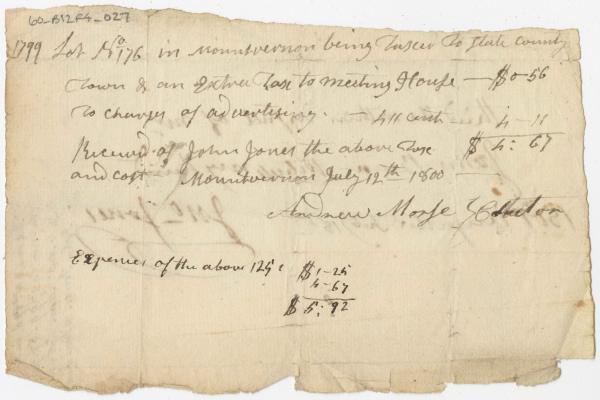 60-B12F4-027
1799 Lot No 176 in Mountvernon being Taxed To State County
Town & an Extra Tax to Meeting House — $0-56
To charges of advertising. — 411 cents — 4-11
Received of John Jones the above Tax $ 4:67
and cost Mountvernon July 12th 1800 —
Andrew Morse
Expences of the above 125 c $1-25
4-67
$ 5:92